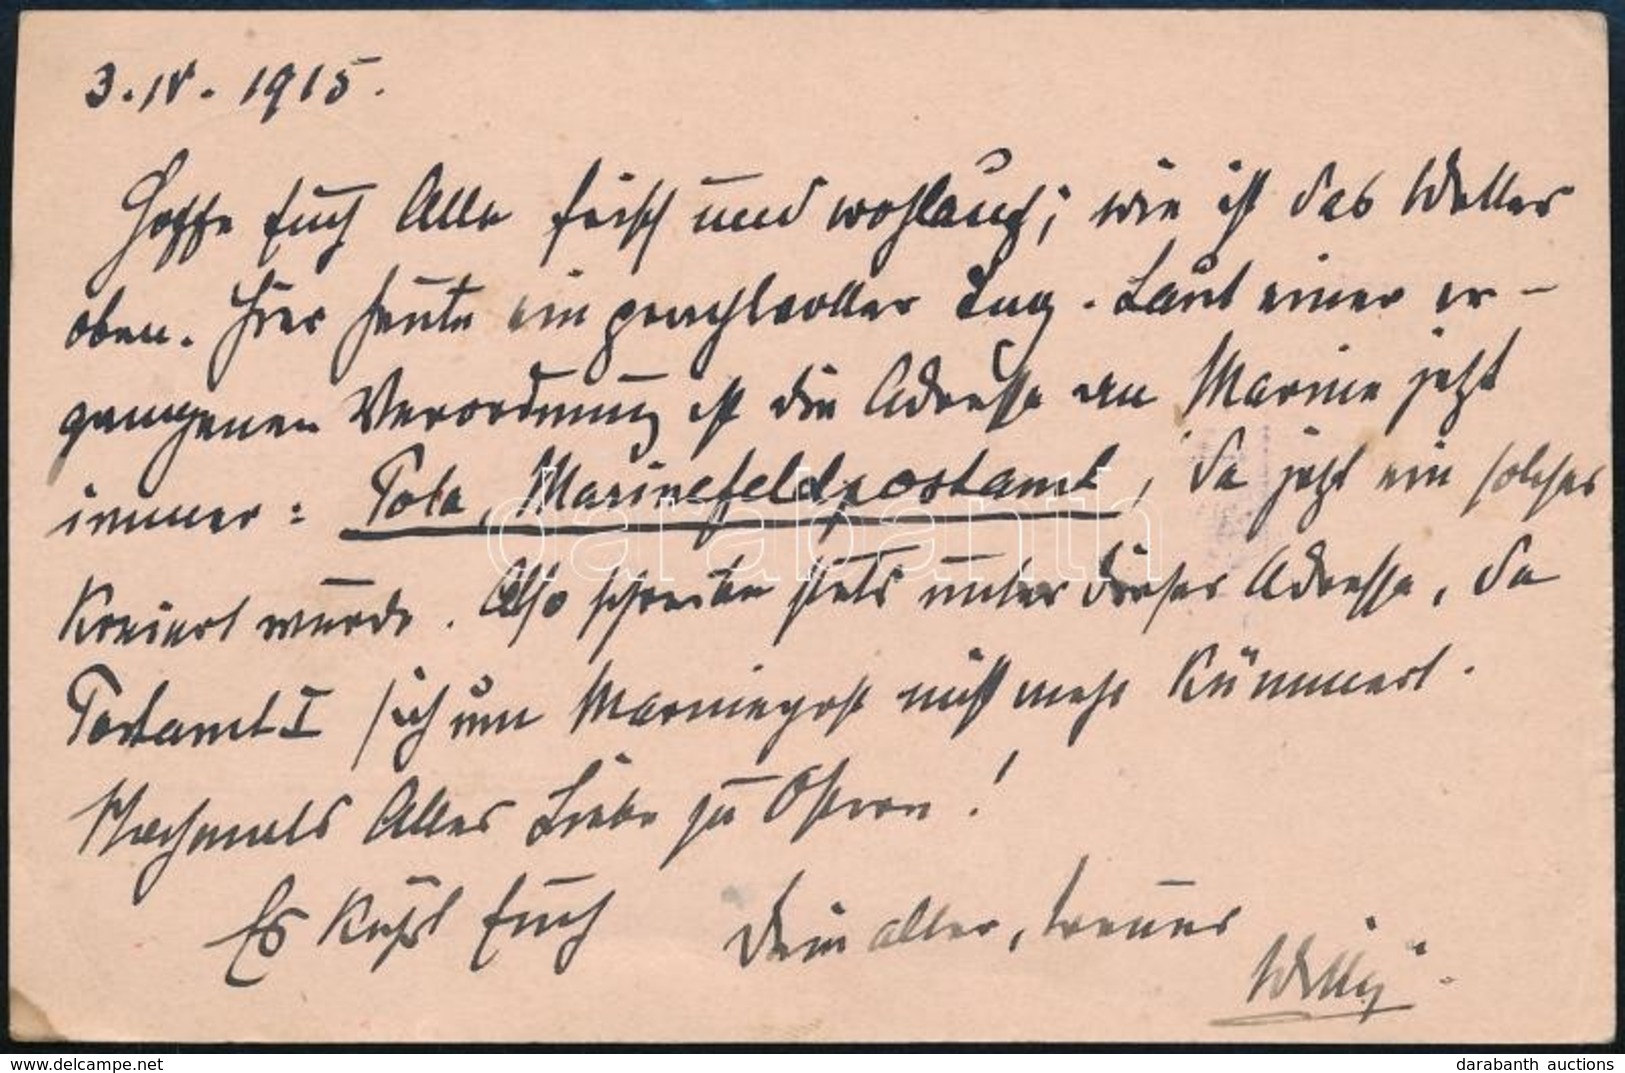 3. IV. 1915.
Hoffe Euch Alle frisch und wohlauf; wie ist das Wetter
oben. Hier heute ein prachtvoller Tag. Laut einer er-
gangenen Verordnung ist die Adresse an Marine jetzt
immer: Pola, Marinefeldpostamt, da jetzt ein solches
kreiert wurde. Also schreibe stets unter dieser Adresse, da
Postamt I sich um Marinepost nicht mehr kümmert.
Nochmals Alles Liebe zu Ostern!
Es küßt Euch Dein alter, treuer
Willy.
darabanth
darabanth auctions